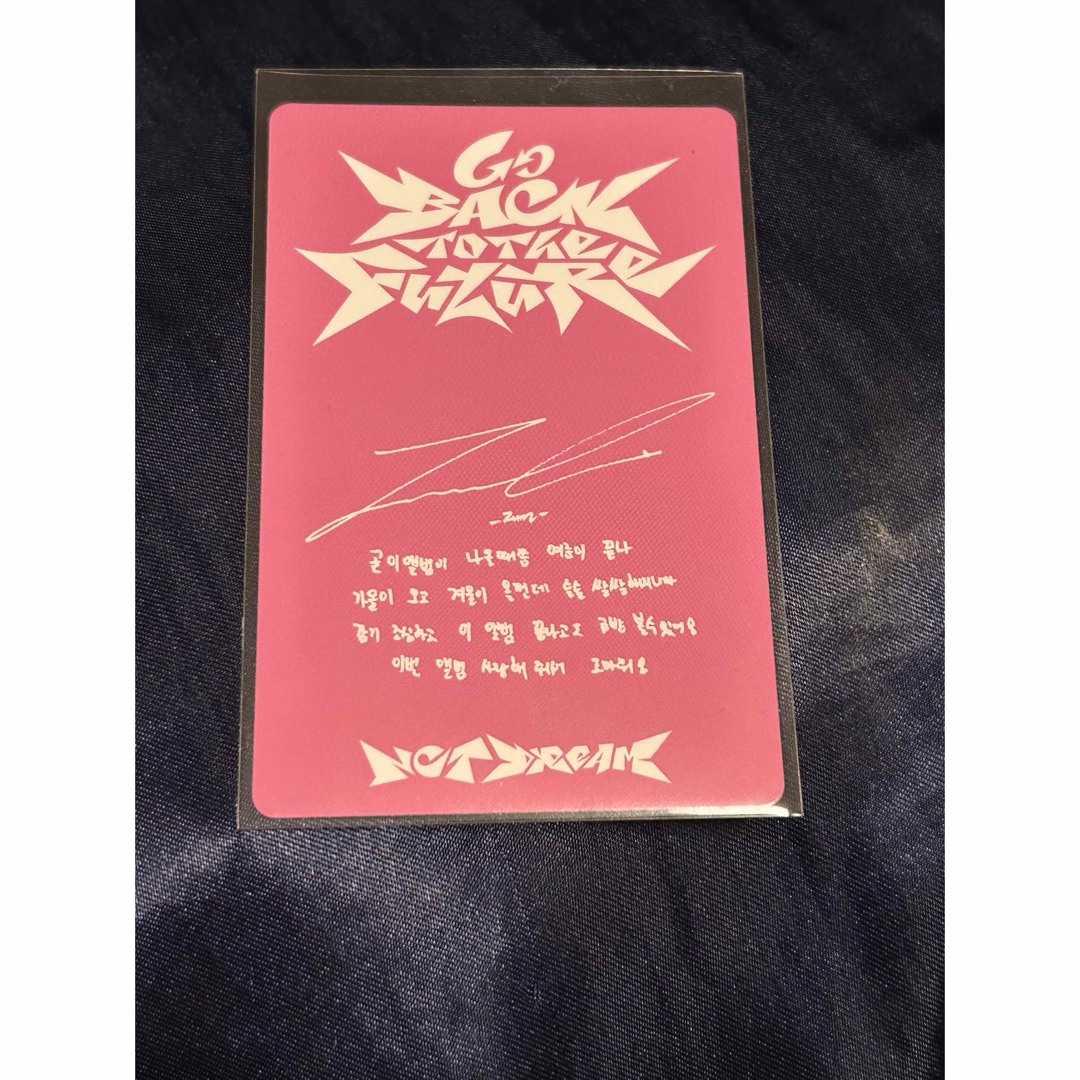 GO
BACK
TO THE
FUTURE
곧 이 앨범이 나온때쯤 여름이 끝나
가을이 오고 겨울이 올껀데 슬슬 쌀쌀해지니까
감기 조심하고 이 앨범 끝나고도 금방 볼수있어요
이번 앨범 사랑해 줘서 고마워요
NCT DREAM